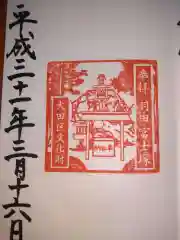 奉拝 羽田富士塚
大田区文化財
平成三十一年三月十六日